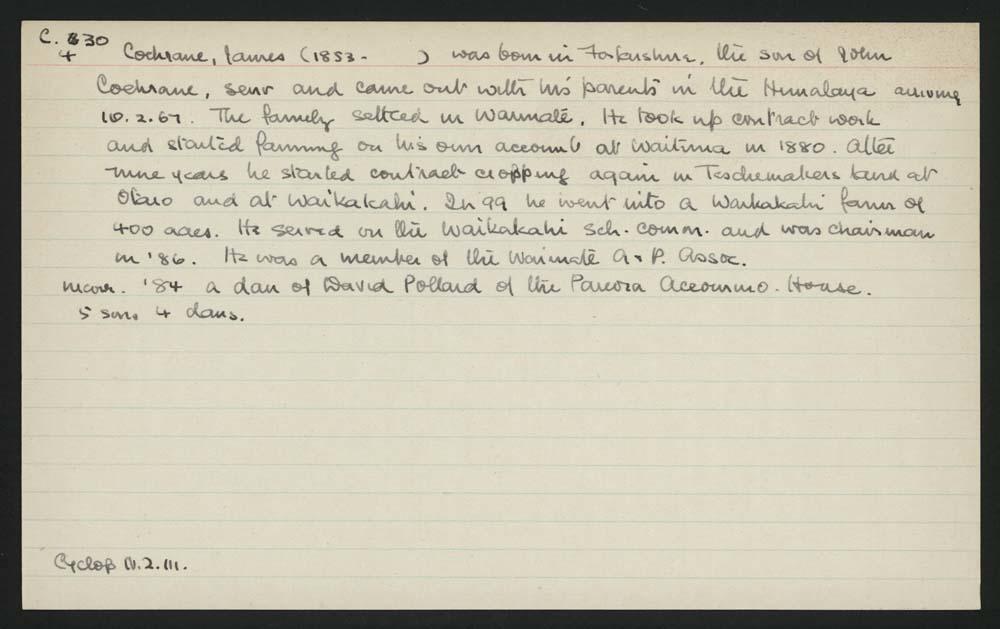 C. 830
4 Cochrane, James (1853- ) was born in Forfarshire, the son of John
Cochrane, senr and came out with his parents in the Himalaya arriving
10.2.67. The family settled in Waimate. He took up contract work
and started farming on his own account at Waituna in 1880. After
nine years he started contract cropping again in Teschemakers land at
Otaio and at Waikakahi. In 99 he went into a Waikakahi farm of
400 acres. He served on the Waikakahi Sch. comm. and was chairman
in '86. He was a member of the Waimate A & P. Assoc.
marr. '84 a dau of David Pollard of the Pareora Accommo. House.
5 sons 4 daus.
Cyclop N.Z. III.